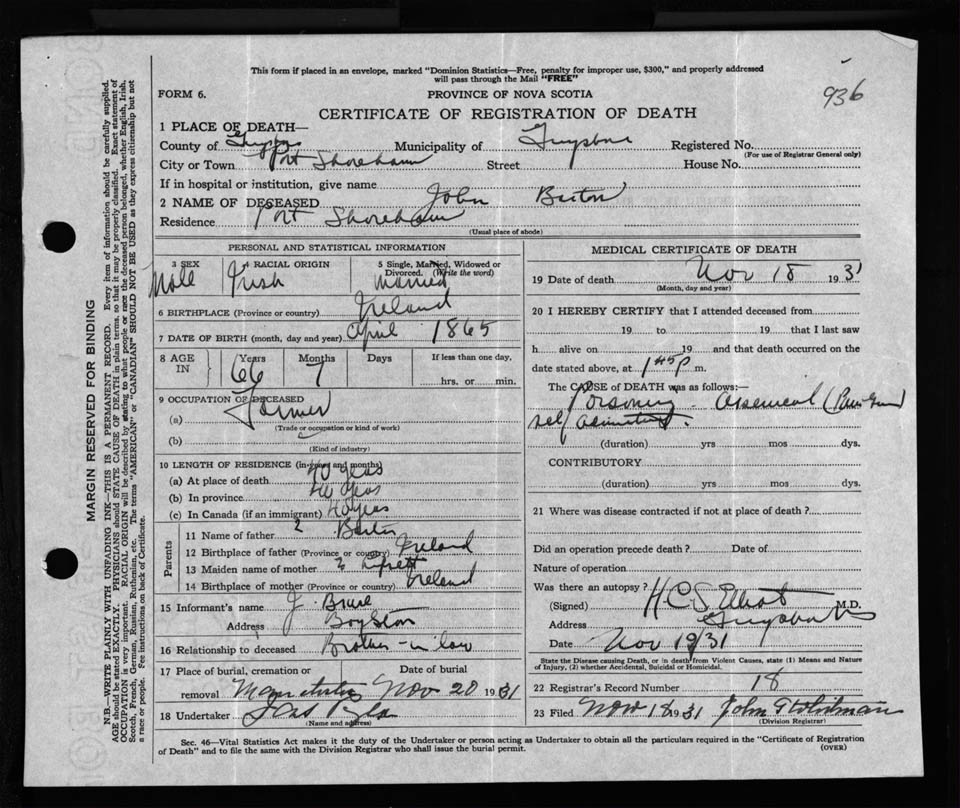 This form if placed in an envelope, marked "Dominion Statistics—Free, penalty for improper use, $300," and properly addressed
will pass through the Mail "FREE"
936
FORM 6.
PROVINCE OF NOVA SCOTIA
CERTIFICATE OF REGISTRATION OF DEATH
1 PLACE OF DEATH—
County of Municipality of Registered No.
(For use of Registrar General only)
City or Town Port Shoreham Street House No.
If in hospital or institution, give name
2 NAME OF DECEASED John
Residence Port Shoreham
(Usual place of abode)
PERSONAL AND STATISTICAL INFORMATION
3 SEX 4 RACIAL ORIGIN 5 Single, Married, Widowed or Divorced. (Write the word)
Male Irish Married
6 BIRTHPLACE (Province or country) Ireland
7 DATE OF BIRTH (month, day and year) April 1865
8 AGE IN Years Months Days If less than one day,
66 7 hrs. or min.
9 OCCUPATION OF DECEASED
(a) Farmer
(Trade or occupation or kind of work)
(b)
(Kind of industry)
10 LENGTH OF RESIDENCE (in years and months)
(a) At place of death 40 years
(b) In province 40 years
(c) In Canada (if an immigrant) 40 years
Parents
11 Name of father ?
12 Birthplace of father (Province or country) Ireland
13 Maiden name of mother
14 Birthplace of mother (Province or country) Ireland
15 Informant's name J. Bruce
Address Boylston
16 Relationship to deceased Brother-in law
17 Place of burial, cremation or removal Date of burial
Nov 20 1931
18 Undertaker Jas
(Name and address)
MEDICAL CERTIFICATE OF DEATH
19 Date of death Nov 18 1931
(Month, day and year)
20 I HEREBY CERTIFY that I attended deceased from
19 to 19 that I last saw
h alive on 19 and that death occurred on the
date stated above, at 1 45 p m.
The CAUSE of DEATH was as follows:—
Poisoning - Arsenical (Paris Green)
self
(duration) yrs mos dys.
CONTRIBUTORY
(duration) yrs mos dys.
21 Where was disease contracted if not at place of death?
Did an operation precede death? Date of
Nature of operation
Was there an autopsy?
(Signed) M.D.
Address
Date Nov 19/31
State the Disease causing Death, or in death from Violent Causes, state (1) Means and Nature
of Injury, (2) whether Accidental, Suicidal or Homicidal.
22 Registrar's Record Number 18
23 Filed Nov 18 1931 John
(Division Registrar)
Sec. 46—Vital Statistics Act makes it the duty of the Undertaker or person acting as Undertaker to obtain all the particulars required in the "Certificate of Registration
of Death" and to file the same with the Division Registrar who shall issue the burial permit.
(OVER)
MARGIN RESERVED FOR BINDING
N.B.—WRITE PLAINLY WITH UNFADING INK—THIS IS A PERMANENT RECORD. Every item of information should be carefully supplied.
AGE should be stated EXACTLY. PHYSICIANS should STATE CAUSE OF DEATH in plain terms, so that it may be properly classified. Exact statement of
OCCUPATION is very important. RACIAL ORIGIN will be described by stating to what people or race the deceased person belonged, whether English, Irish,
Scotch, French, German, Russian, Ruthenian, etc. The terms "AMERICAN" or "CANADIAN" SHOULD NOT BE USED as they express citizenship but not
a race or people. Fee instructions on back of Certificate.